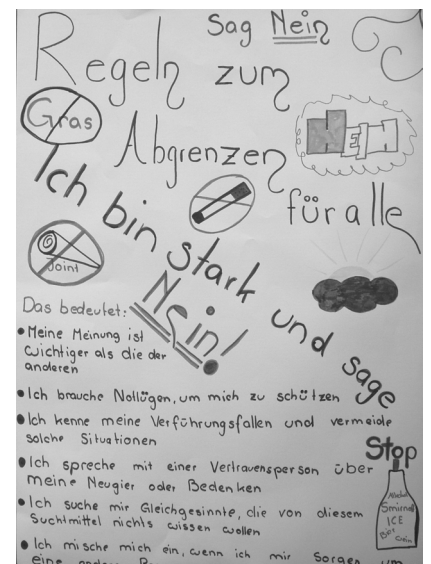 Sag Nein
Regeln zum
Gras
Abgrenzen
für alle
Ich bin stark und sage
Nein!
Joint
Das bedeutet:
• Meine Meinung ist
wichtiger als die der
anderen
• Ich brauche Notlügen, um mich zu schützen
• Ich kenne meine Verführungsfallen und vermeide
solche Situationen
• Ich spreche mit einer Vertrauensperson über
meine Neugier oder Bedenken
• Ich suche mir Gleichgesinnte, die von diesem
Suchtmittel nichts wissen wollen
• Ich mische mich ein, wenn ich mir Sorgen um
eine andere
Stop
Alkohol
Smirnoff
ICE
Bier